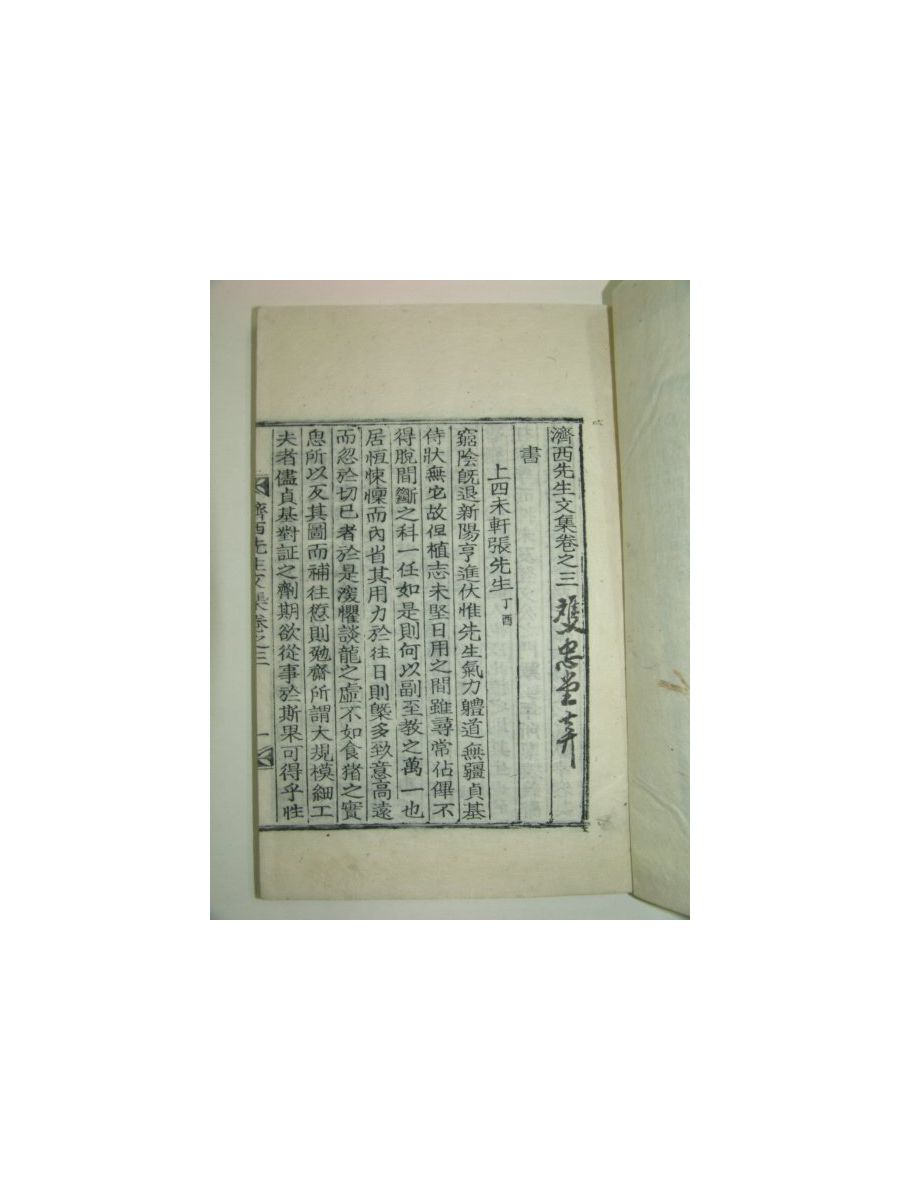 濟西先生文集卷之三 雙忠堂弆
書
上四未軒張先生 丁酉
窮陰旣退新陽亨進伏惟先生氣力軆道無疆貞基
侍狀無它故但植志未堅日用之間雖尋常佔僤不
得脫間斷之科一任如是則何以副至教之萬一也
居恒悚懍而內省其用力於往日則槩多致意高遠
而忽於切已者於是寖懼談龍之虛不如食猪之實
思所以反其圖而補往愆則勉齋所謂大規模細工
夫者儘貞基對証之劑期欲從事於斯果可得乎性
濟西先生文集卷之三 一